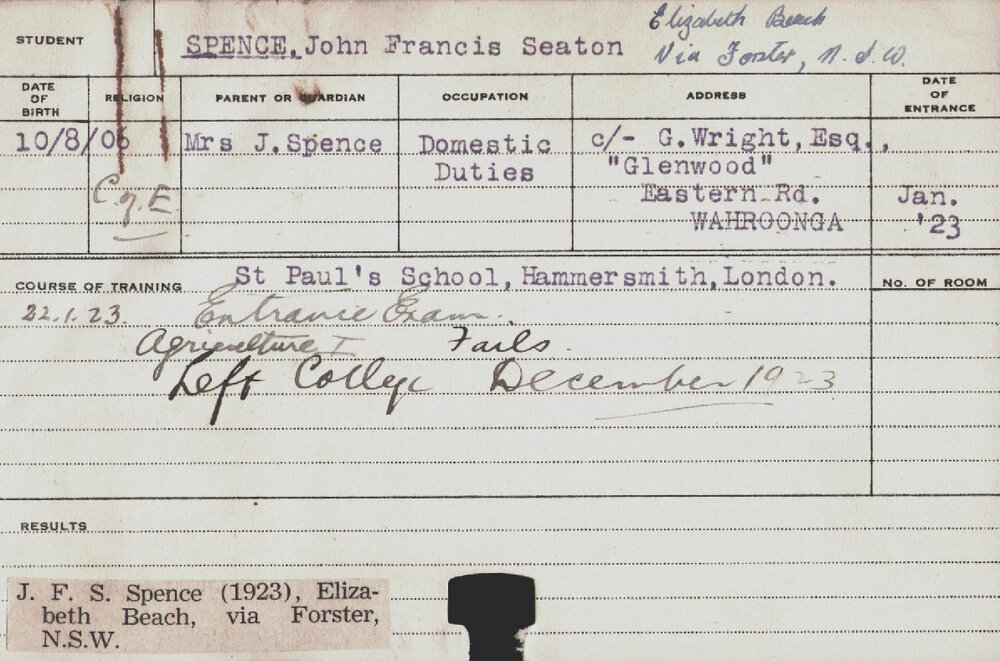 STUDENT SPENCE, John Francis Seaton
Elizabeth Beach
Via Forster, N.S.W.
DATE OF BIRTH RELIGION PARENT OR GUARDIAN OCCUPATION ADDRESS DATE OF ENTRANCE
10/8/06 Mrs J. Spence Domestic c/- G. Wright, Esq.,
Duties "Glenwood"
C of E Eastern Rd. Jan.
WAHROONGA '23
COURSE OF TRAINING St Paul's School, Hammersmith, London. No. OF ROOM
22.1.23. Entrance Exam.
Agriculture I Fails.
Left College December 1923
RESULTS
J. F. S. Spence (1923), Eliza-
beth Beach, via Forster,
N.S.W.